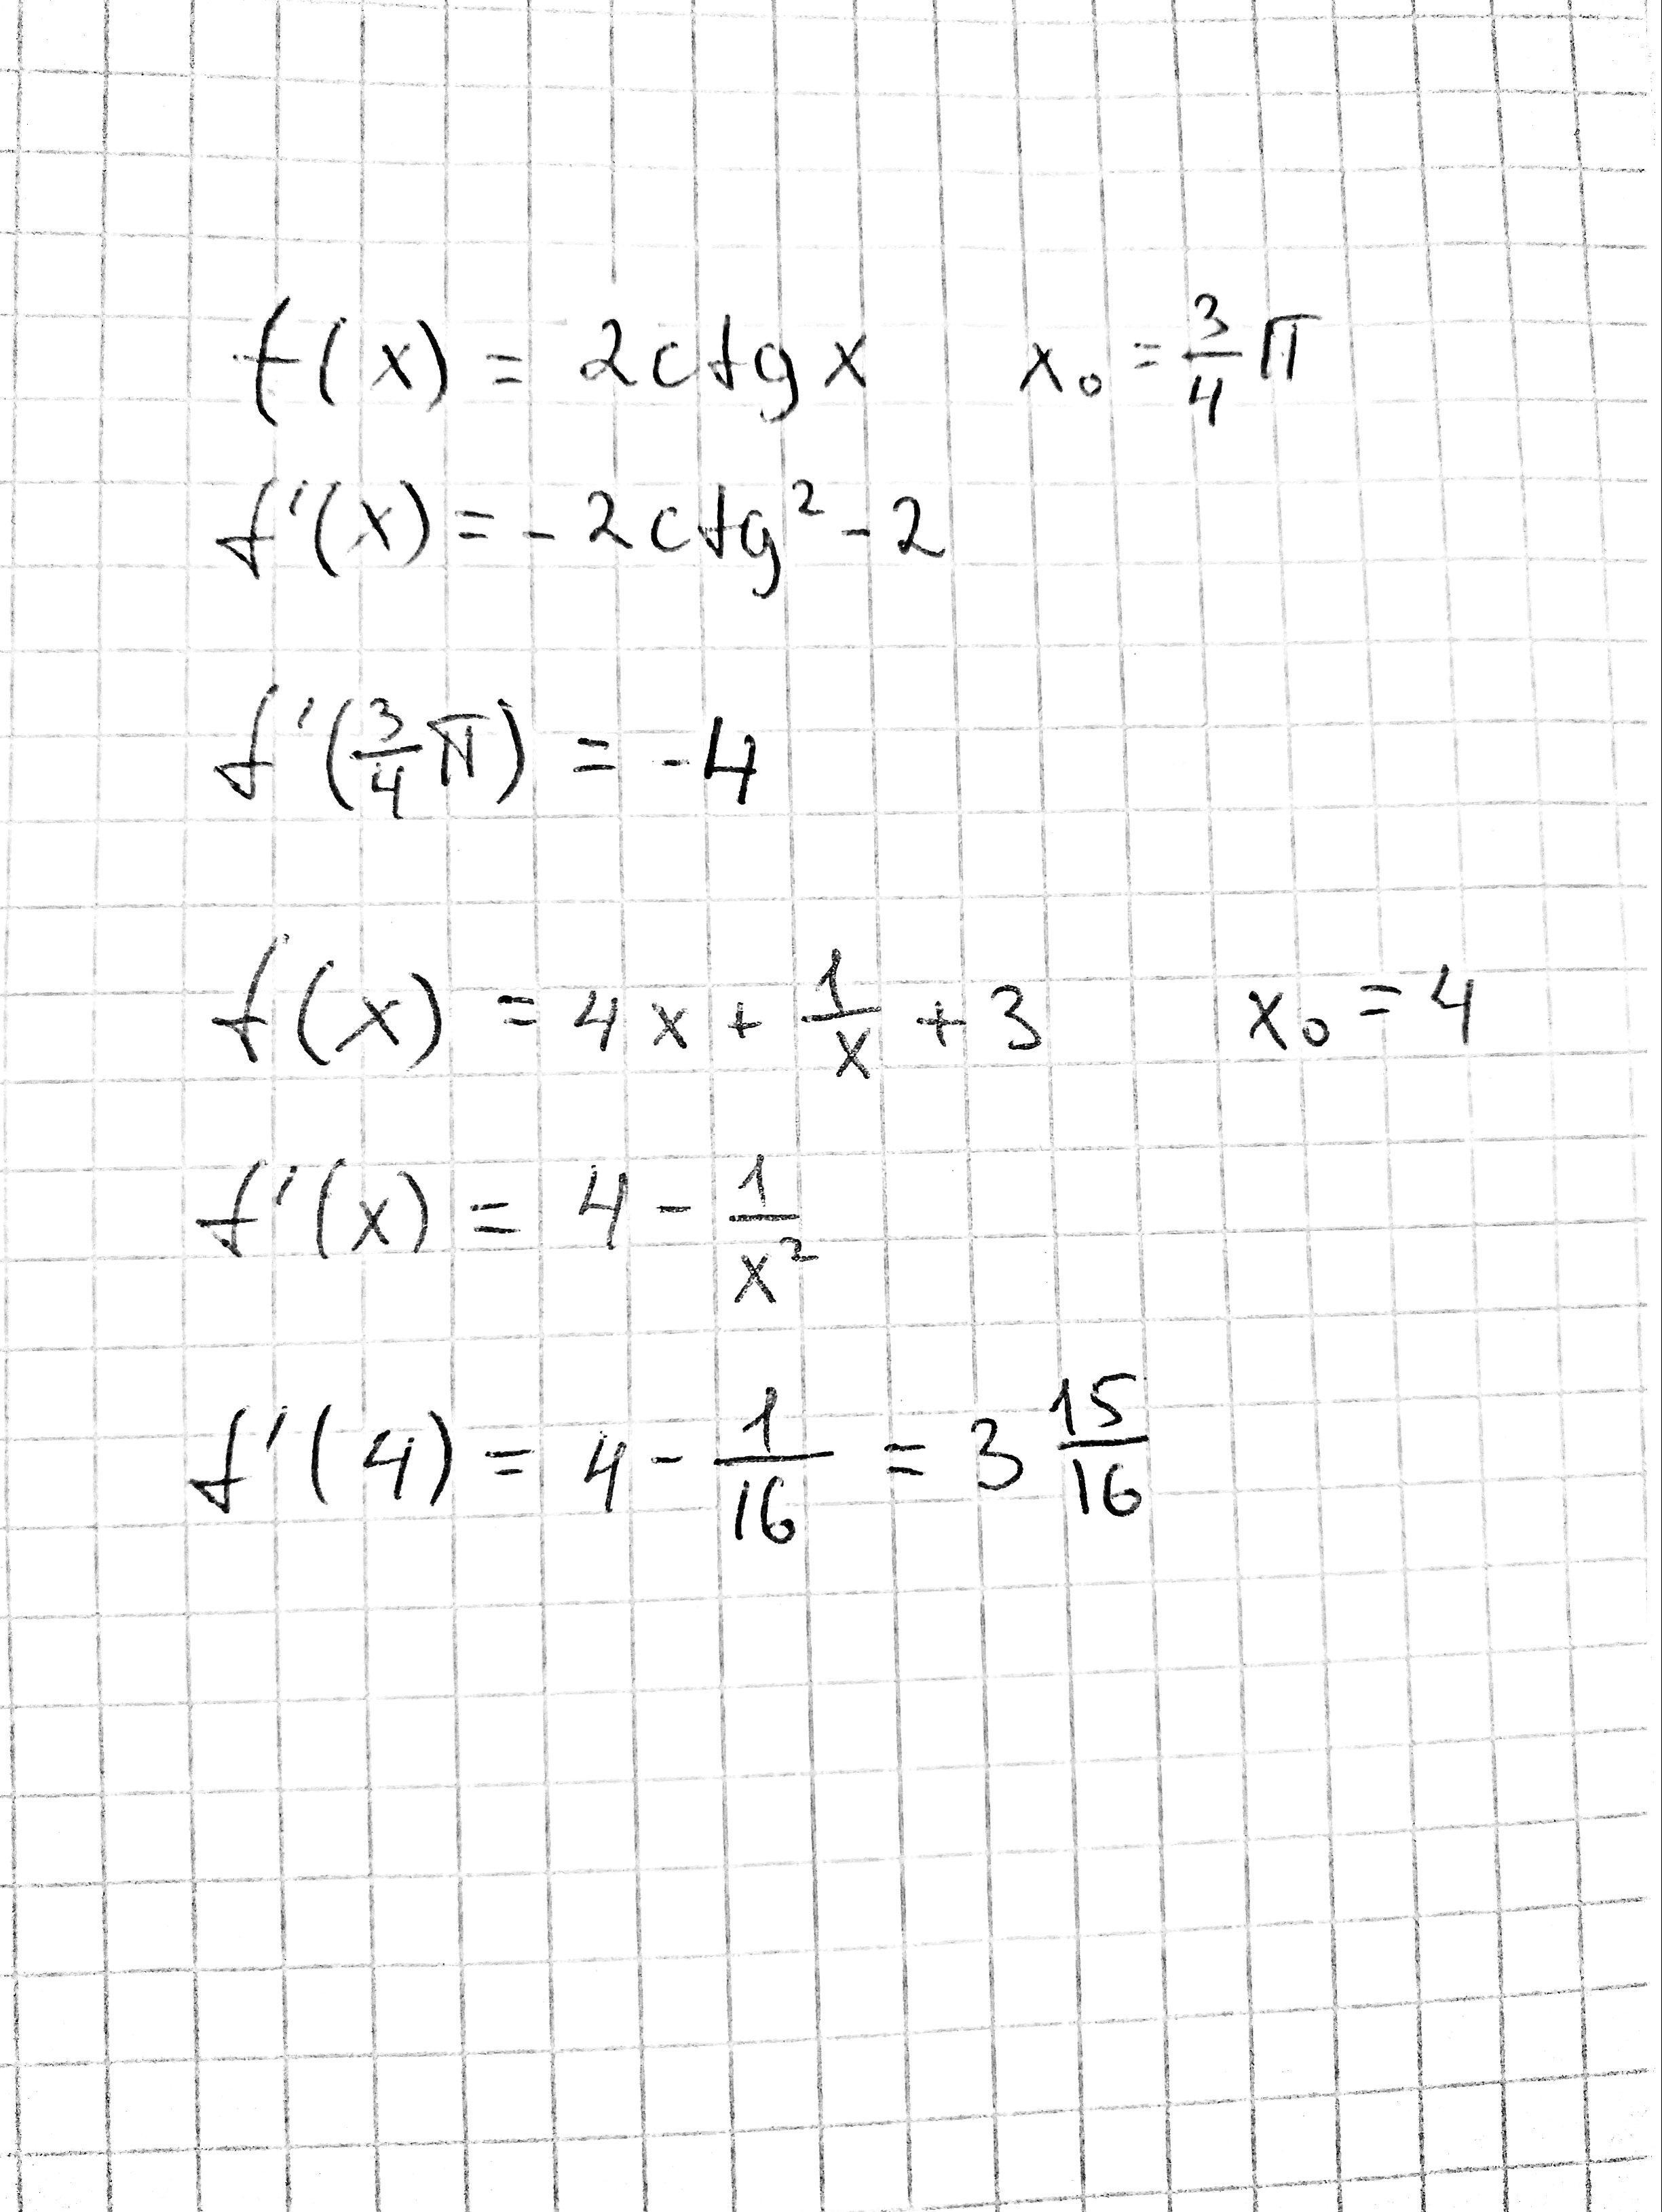 f(x) = 2ctgx x₀ = 3/4 π
f'(x) = -2ctg² - 2
f'(3/4 π) = -4
f(x) = 4x + 1/x + 3 x₀ = 4
f'(x) = 4 - 1/x²
f'(4) = 4 - 1/16 = 3 15/16